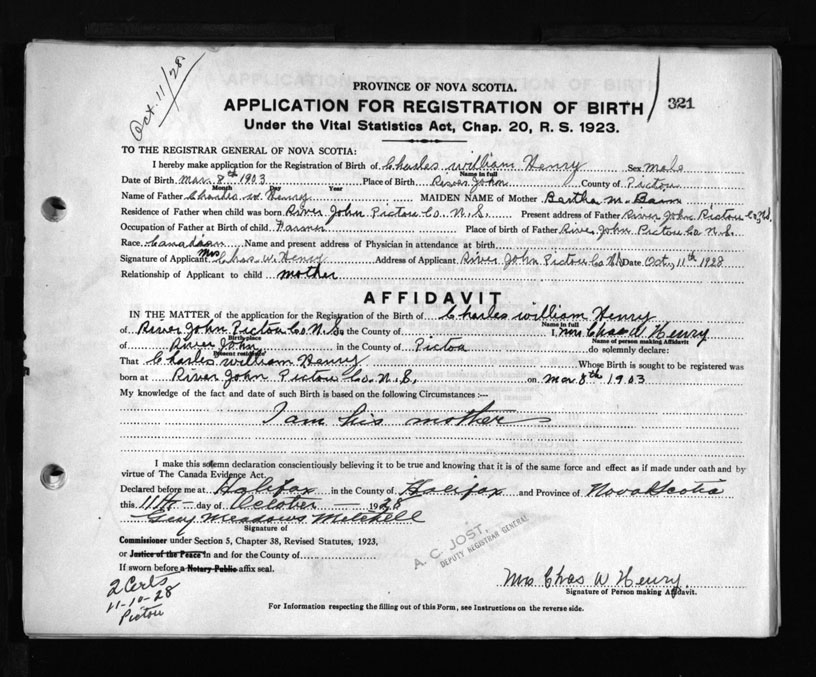 Oct. 11/28
PROVINCE OF NOVA SCOTIA.
APPLICATION FOR REGISTRATION OF BIRTH
321
Under the Vital Statistics Act, Chap. 20, R. S. 1923.
TO THE REGISTRAR GENERAL OF NOVA SCOTIA:
I hereby make application for the Registration of Birth of Charles William Henry Sex male
Name in full
Date of Birth Mar 8th 1903 Place of Birth River John County of Pictou
Month Day Year
Name of Father Charles W. Henry MAIDEN NAME of Mother Bertha M.
Residence of Father when child was born River John Pictou Co. N.S. Present address of Father River John, Pictou Co.
Occupation of Father at Birth of child Farmer Place of birth of Father River John Pictou Co N.S.
Race Canadian Name and present address of Physician in attendance at birth
Signature of Applicant Mrs Chas. W. Henry Address of Applicant River John Pictou Co NS Date Oct 11th 1928
Relationship of Applicant to child mother
AFFIDAVIT
IN THE MATTER of the application for the Registration of the Birth of Charles William Henry
Name in full
of River John Pictou Co N.S. in the County of I, Mrs Chas W Henry
Birthplace Name of person making Affidavit
of River John in the County of Pictou do solemnly declare:
Present residence
That Charles William Henry Whose Birth is sought to be registered was
born at River John Pictou Co. N.S. on Mar 8th 1903
My knowledge of the fact and date of such Birth is based on the following Circumstances :—
I am his mother
I make this solemn declaration conscientiously believing it to be true and knowing that it is of the same force and effect as if made under oath and by
virtue of The Canada Evidence Act.
Declared before me at Halifax in the County of Halifax and Province of Nova Scotia
this 11th day of October 1928
Guy Meadows Mitchell
Signature of
Commissioner under Section 5, Chapter 38, Revised Statutes, 1923,
or Justice of the Peace in and for the County of
If sworn before a Notary Public affix seal.
A. C. JOST.
DEPUTY REGISTRAR GENERAL
2 Certs
11-10-28
Pictou
Mrs Chas W Henry
Signature of Person making Affidavit.
For Information respecting the filling out of this Form, see Instructions on the reverse side.